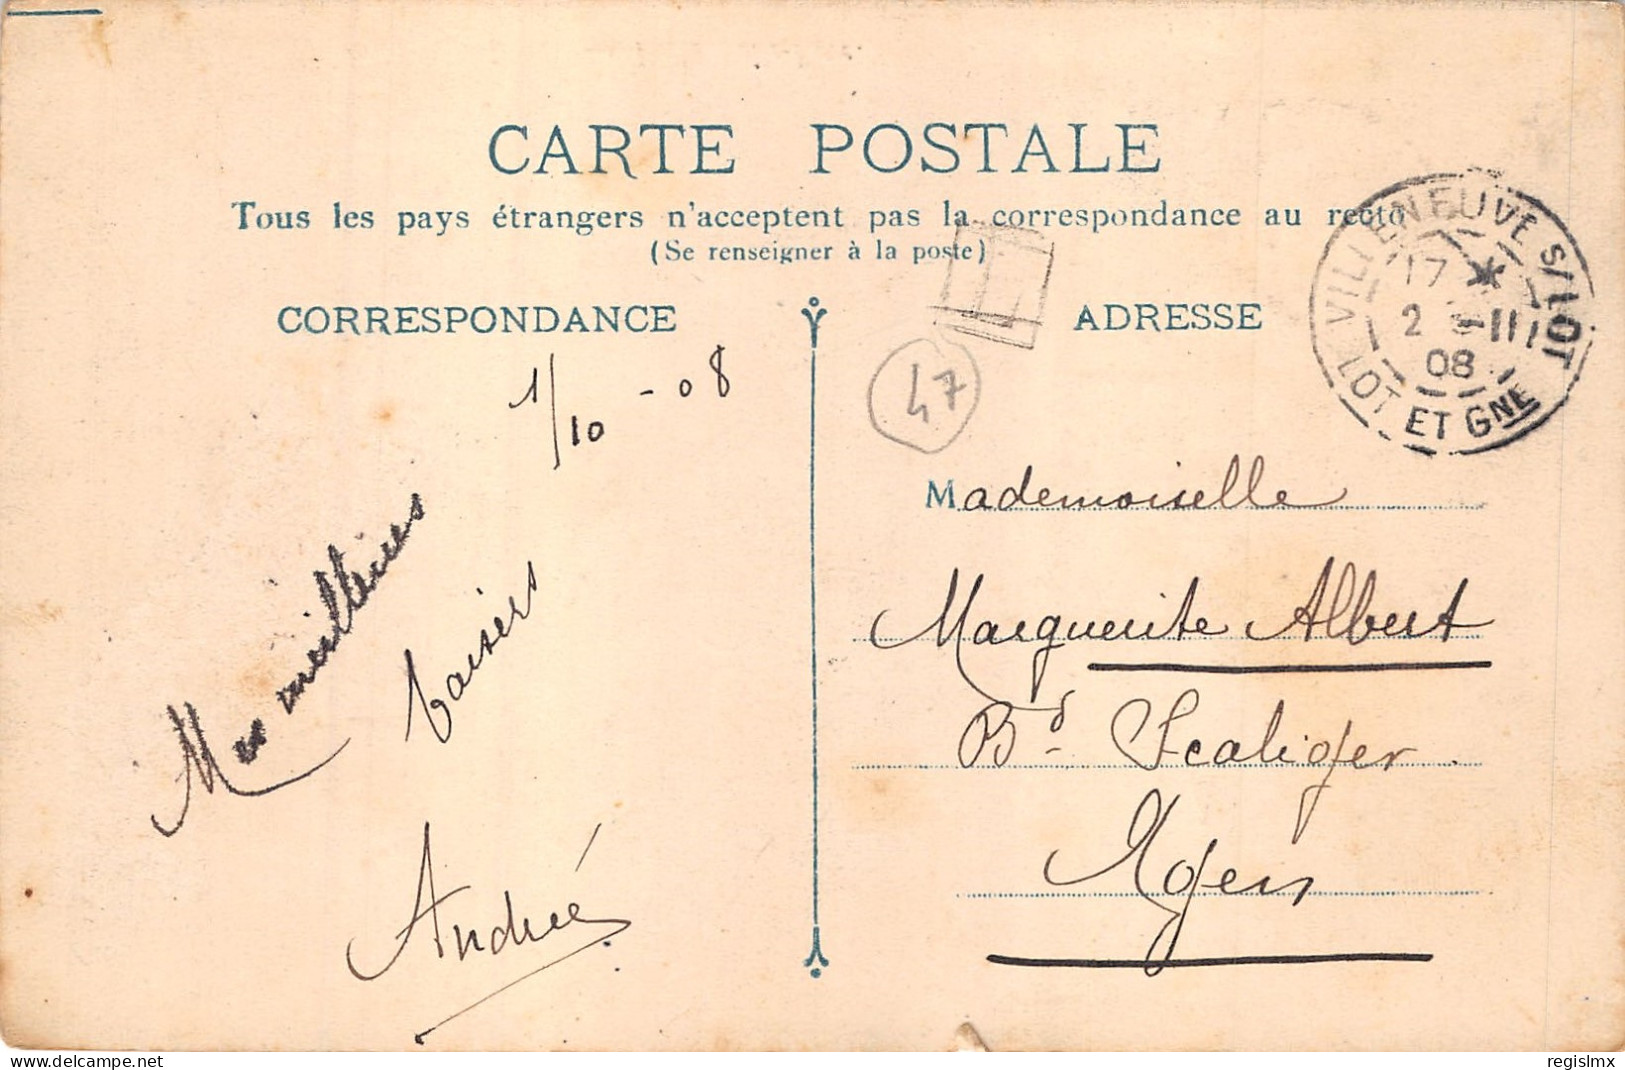 CARTE POSTALE
Tous les pays étrangers n'acceptent pas la correspondance au recto
(Se renseigner à la poste)
CORRESPONDANCE
ADRESSE
1/10 - 08
Mes meilleurs
baisers
André
47
VILLENEUVE S/LOT
17 *
08
LOT ET GNE
Mademoiselle
Marguerite Albert
Bd Scaliger
Agen
delcampe.net
regislmx